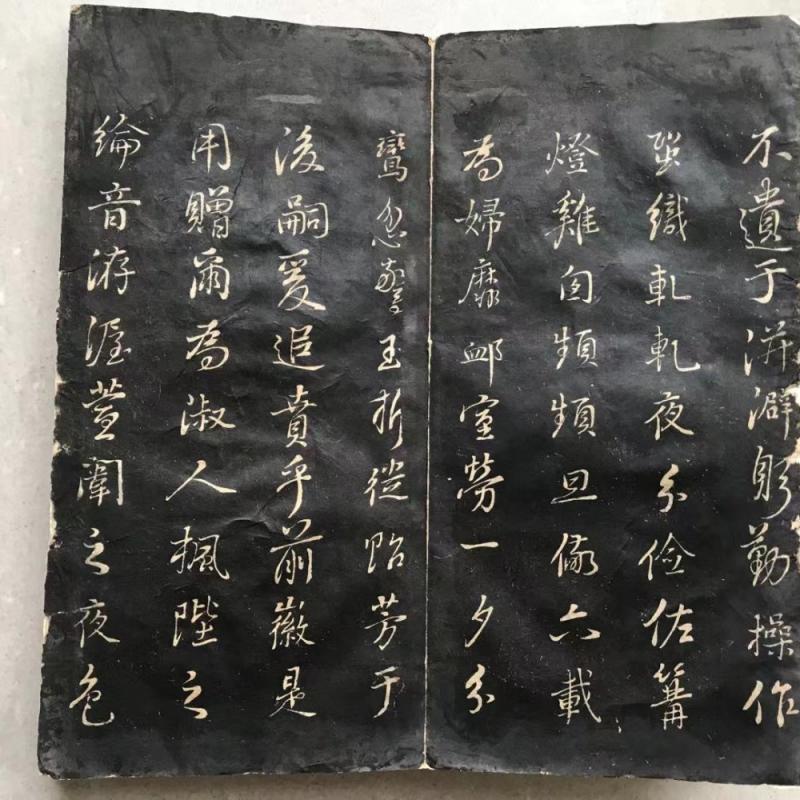 不遺于洴澼躬勤操作
蛩織軋軋夜分儉佐篝
燈雞囱頻頻旦儆六載
為婦靡卹室勞一夕分
鸞忽驚玉折從貽芳于
後嗣爰追賁乎前徽是
用贈爾為淑人楓陛之
綸音游渥萱闈之夜色